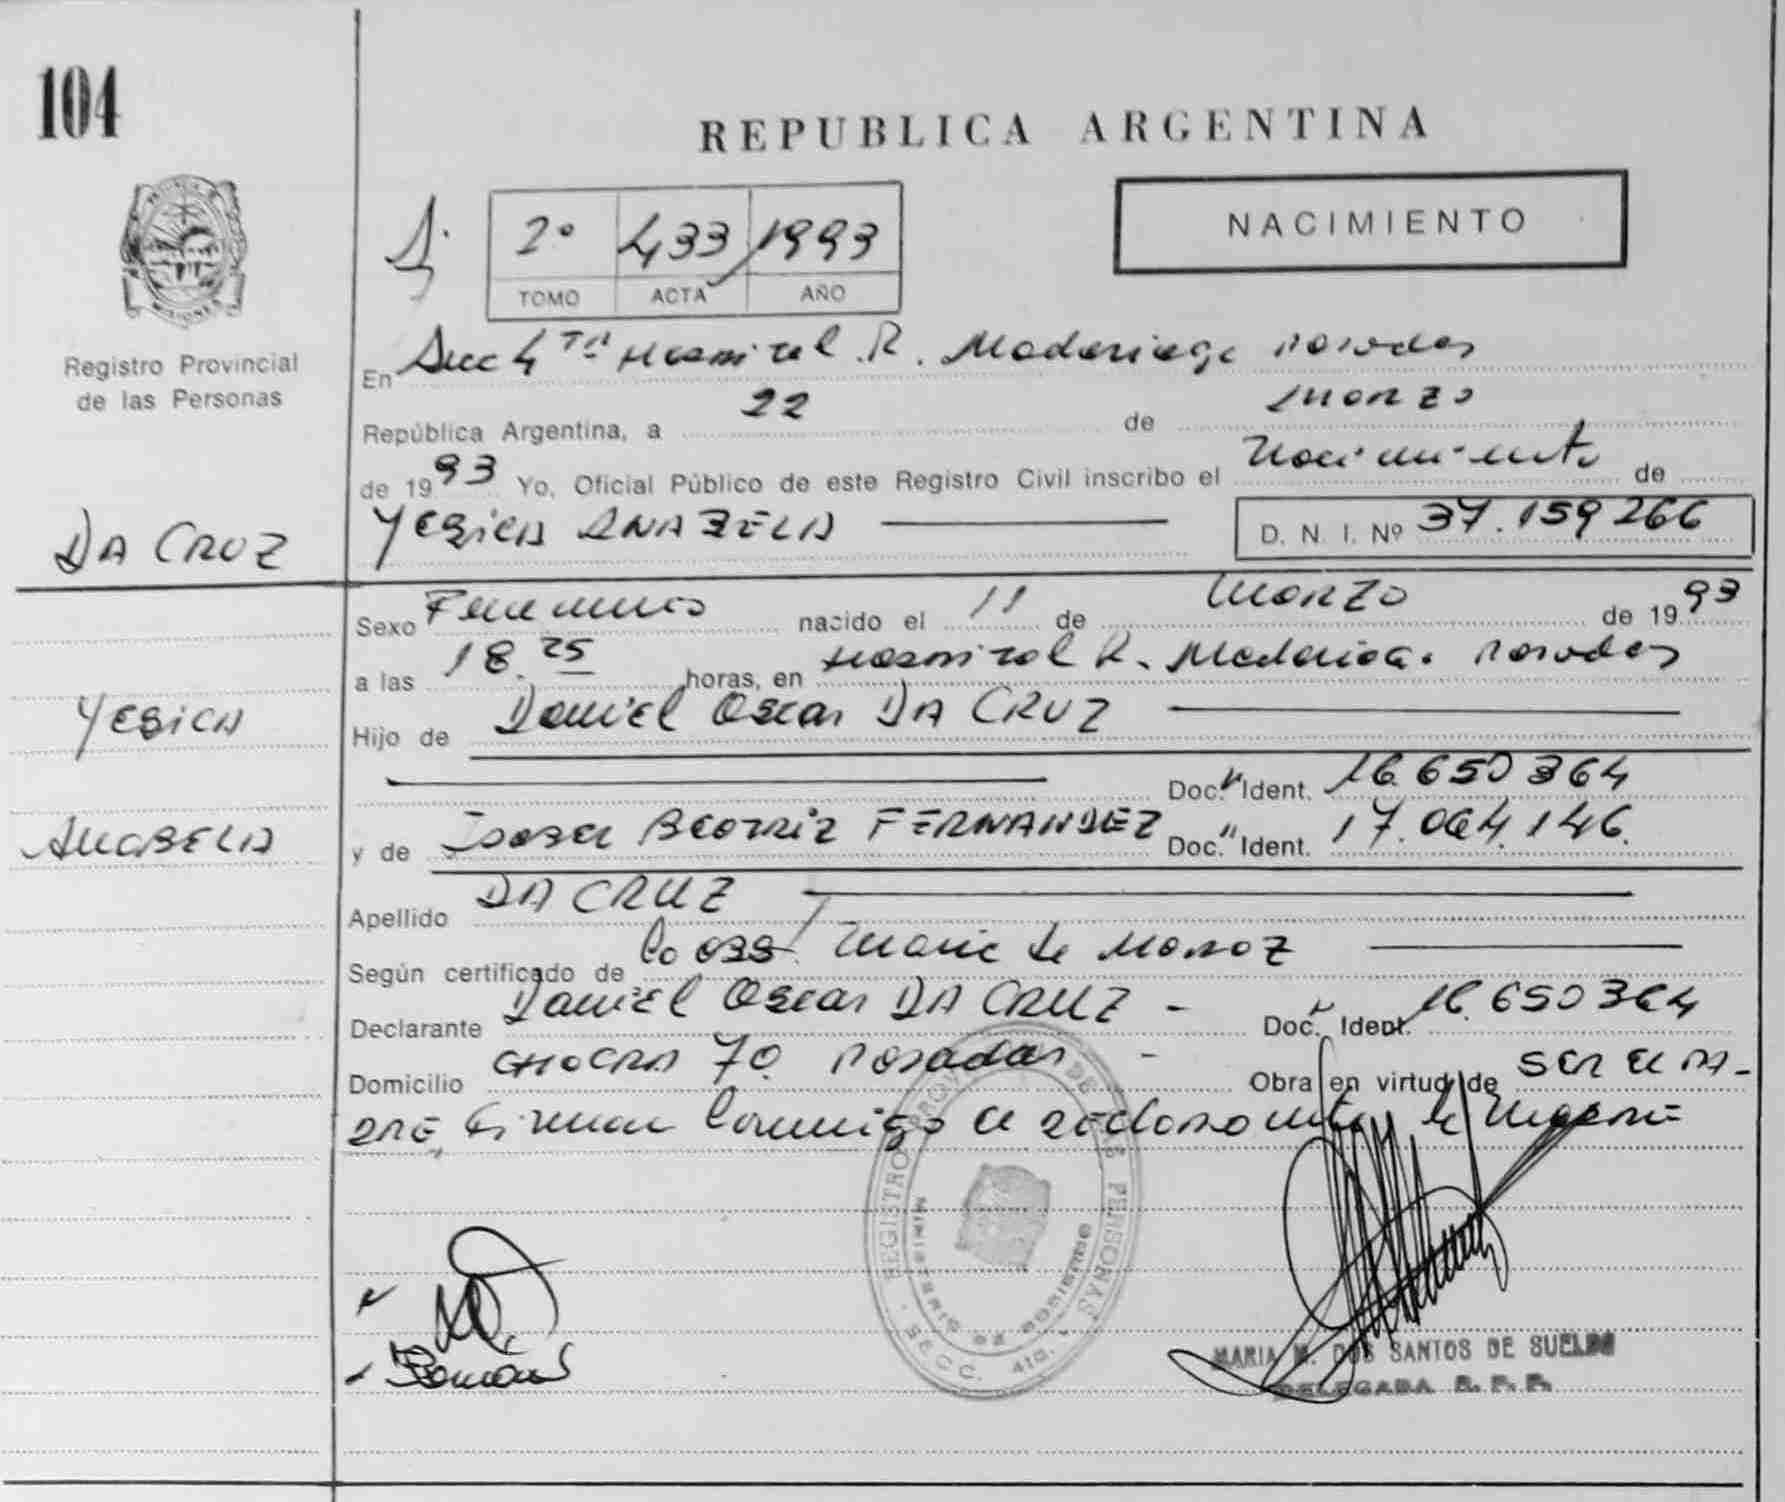 104
REPUBLICA ARGENTINA
2º 433/1993
TOMO ACTA AÑO
NACIMIENTO
PROVINCIA DE MISIONES
Registro Provincial
de las Personas
En Secc 4TA Hospital R. Madariaga Posadas
República Argentina, a 22 de Marzo
de 1993 Yo, Oficial Público de este Registro Civil inscribo el Nacimiento de
DA CRUZ
YESICA ANABELA
D. N. I. Nº 37.159266
Sexo Femenino nacido el 11 de Marzo de 1993
a las 18.25 horas, en Hospital R. Madariaga Posadas
YESICA
Hijo de Daniel Oscar DA CRUZ
Doc. Ident. 16.650364
ANABELA
y de Isabel Beatriz FERNANDEZ Doc. Ident. 17.064.146.
Apellido DA CRUZ
Según certificado de la obst. Maria de
Declarante Daniel Oscar DA CRUZ - Doc. Ident. 16.650364
Domicilio CHACRA 70 Posadas - Obra en virtud de SER el PA-
DRE, Firman Conmigo el declarante y la Madre
REGISTRO PROV. DE LAS PERSONAS
MINISTERIO DE GOBIERNO
SECC. 4ta.
MARIA M. DOS SANTOS DE SUELDO
DELEGADA R. P. P.